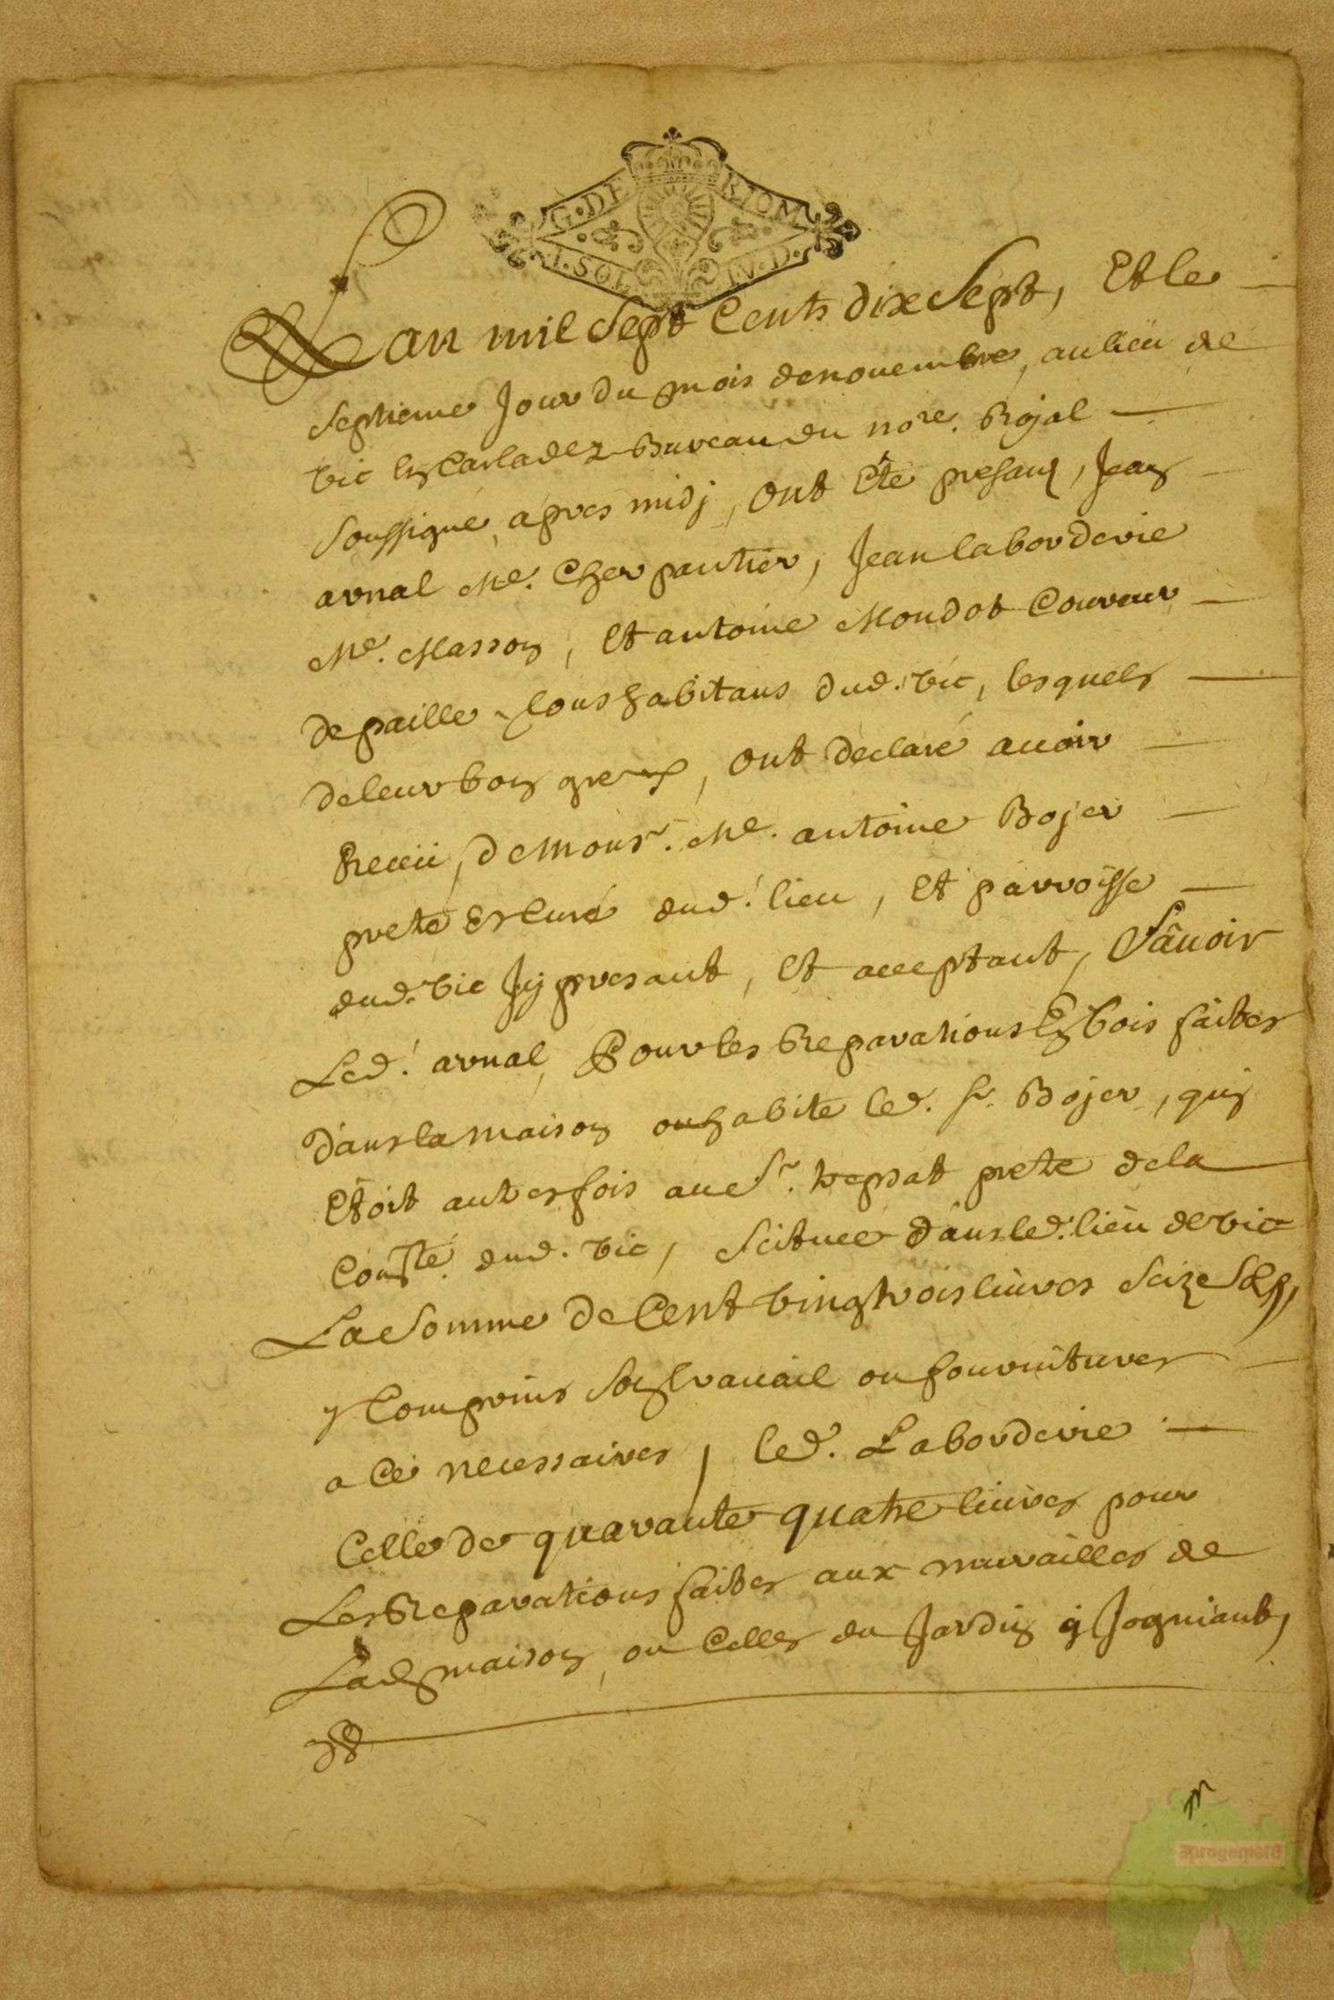 G. DE RIOM
1. SOL IV. D.
Lan mil Sept Cents dix Sept, Et le
Septieme Jour du mois de nouembre, au lieu de
Vic En Carladez Bureau du nore. Royal
Soussigné, apres midj, ont Eté presans, Jean
arnal Me. Cherpantier, Jean laborderie
Me. Masson, Et antoine Moudot Couvreur
de paille, tous habitans dud. Vic, lesquels
de leur bon gre, ont declaré auoir
Receü, de Monsr. Me. antoine Bojer
prete Et Curé dud. lieu, Et parroisse
dud. Vic Jcy presant, Et acceptant, Sauoir
Led. arnal, Pour les Reparations En bois faites
dans la maison ou habite led. Sr. Bojer, qui
Etoit autresfois au Sr. prete de la
Conté. dud. Vic, Scituée dans led. lieu de Vic
La Somme de Cent Vingt trois liures Seize Sols,
y Compris Son trauail ou fournitures
a Ce necessaires, led. Laborderie
Celle de quarante quatre liures pour
Les Reparations faites aux murailles de
Lad. maison, ou Celles du Jardin y Jogniant,